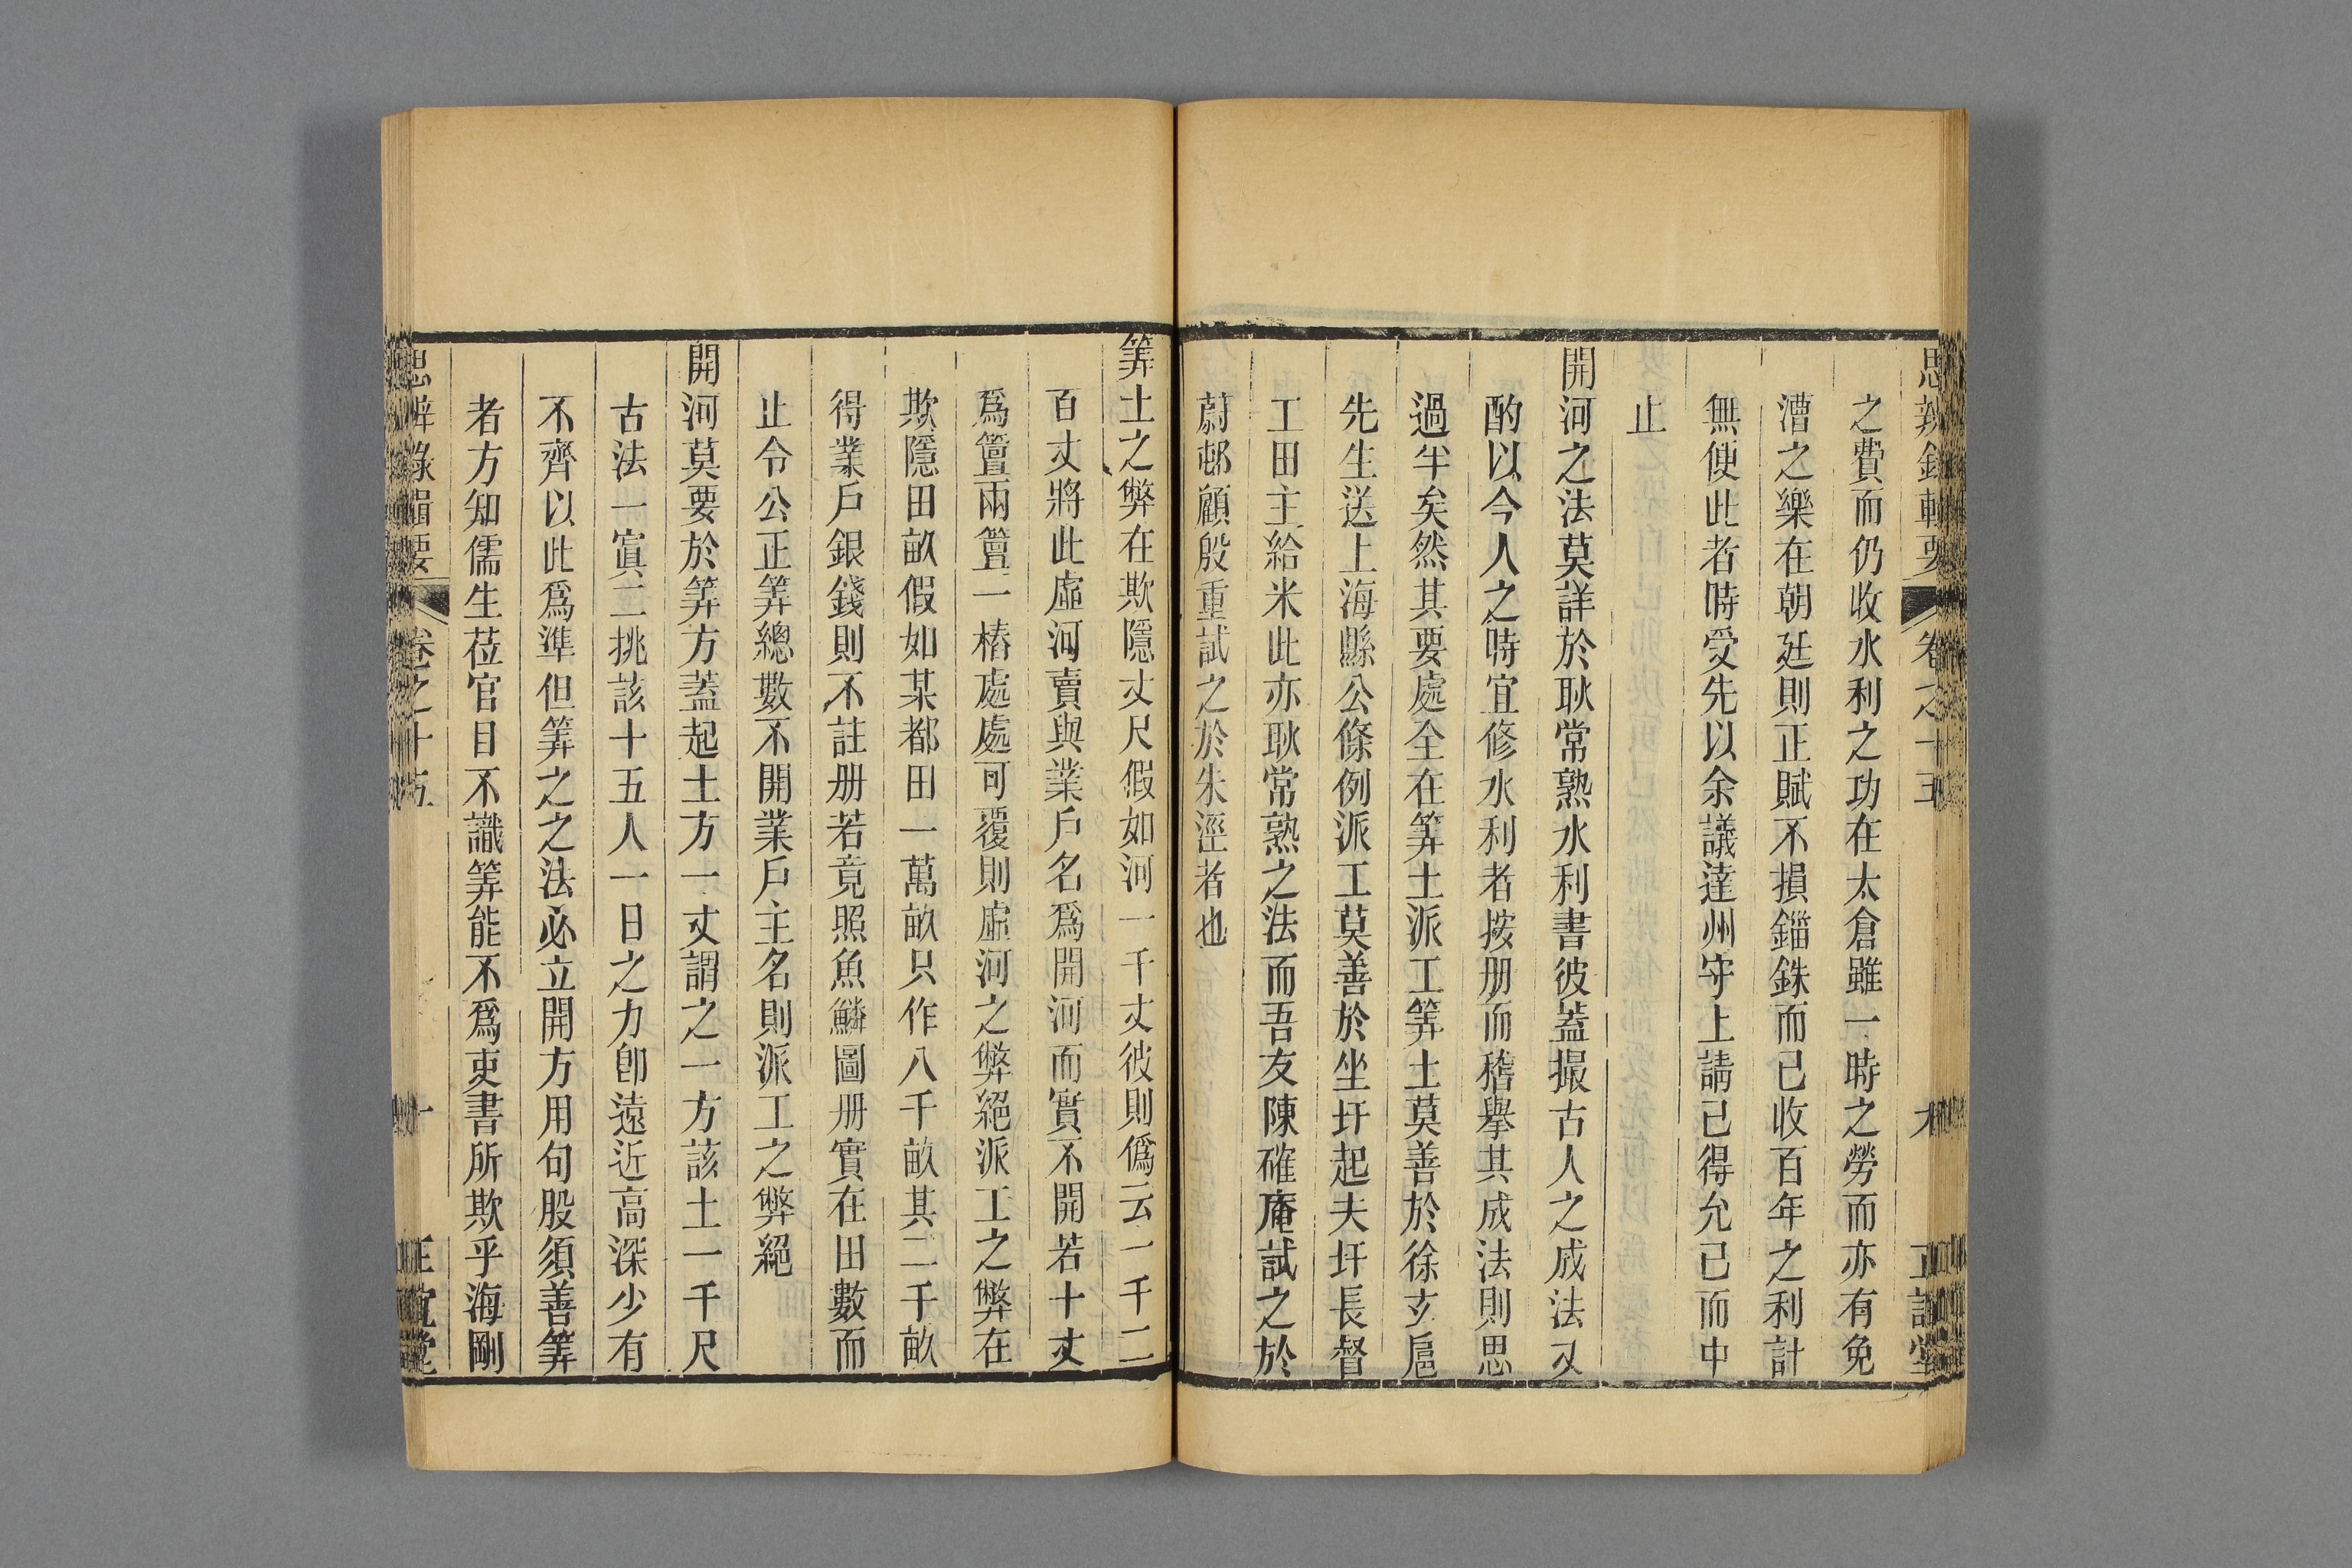 思辨錄輯要 卷之十五 九 正誼堂
之費而仍收水利之功在太倉雖一時之勞而亦有免
漕之樂在朝廷則正賦不損錙銖而已收百年之利計
無便此者時受先以余議達州守上請已得允已而中
止
開河之法莫詳於耿常熟水利書彼葢撮古人之成法又
酌以今人之時宜修水利者按册而稽舉其成法則思
過半矣然其要處全在筭土派工筭土莫善於徐玄扈
先生送上海縣公條例派工莫善於坐圩起夫圩長督
工田主給米此亦耿常熟之法而吾友陳確庵試之於
蔚邨顧殷重試之於朱涇者也
筭土之弊在欺隱丈尺假如河一千丈彼則僞云一千二
百丈將此虛河賣與業戶名爲開河而實不開若十丈
爲簹兩簹一樁處處可覆則虛河之弊絕派工之弊在
欺隱田畝假如某都田一萬畝只作八千畝其二千畝
得業戶銀錢則不註册若竟照魚鱗圖册實在田數而
止令公正筭總數不開業戶主名則派工之弊絕
開河莫要於筭方葢起土方一丈謂之一方該土一千尺
古法一寘二挑該十五人一日之力卽遠近高深少有
不齊以此爲準但筭之之法必立開方用句股須善筭
者方知儒生莅官目不識筭能不爲吏書所欺乎海剛
思辨錄輯要 卷之十五 十 正誼堂